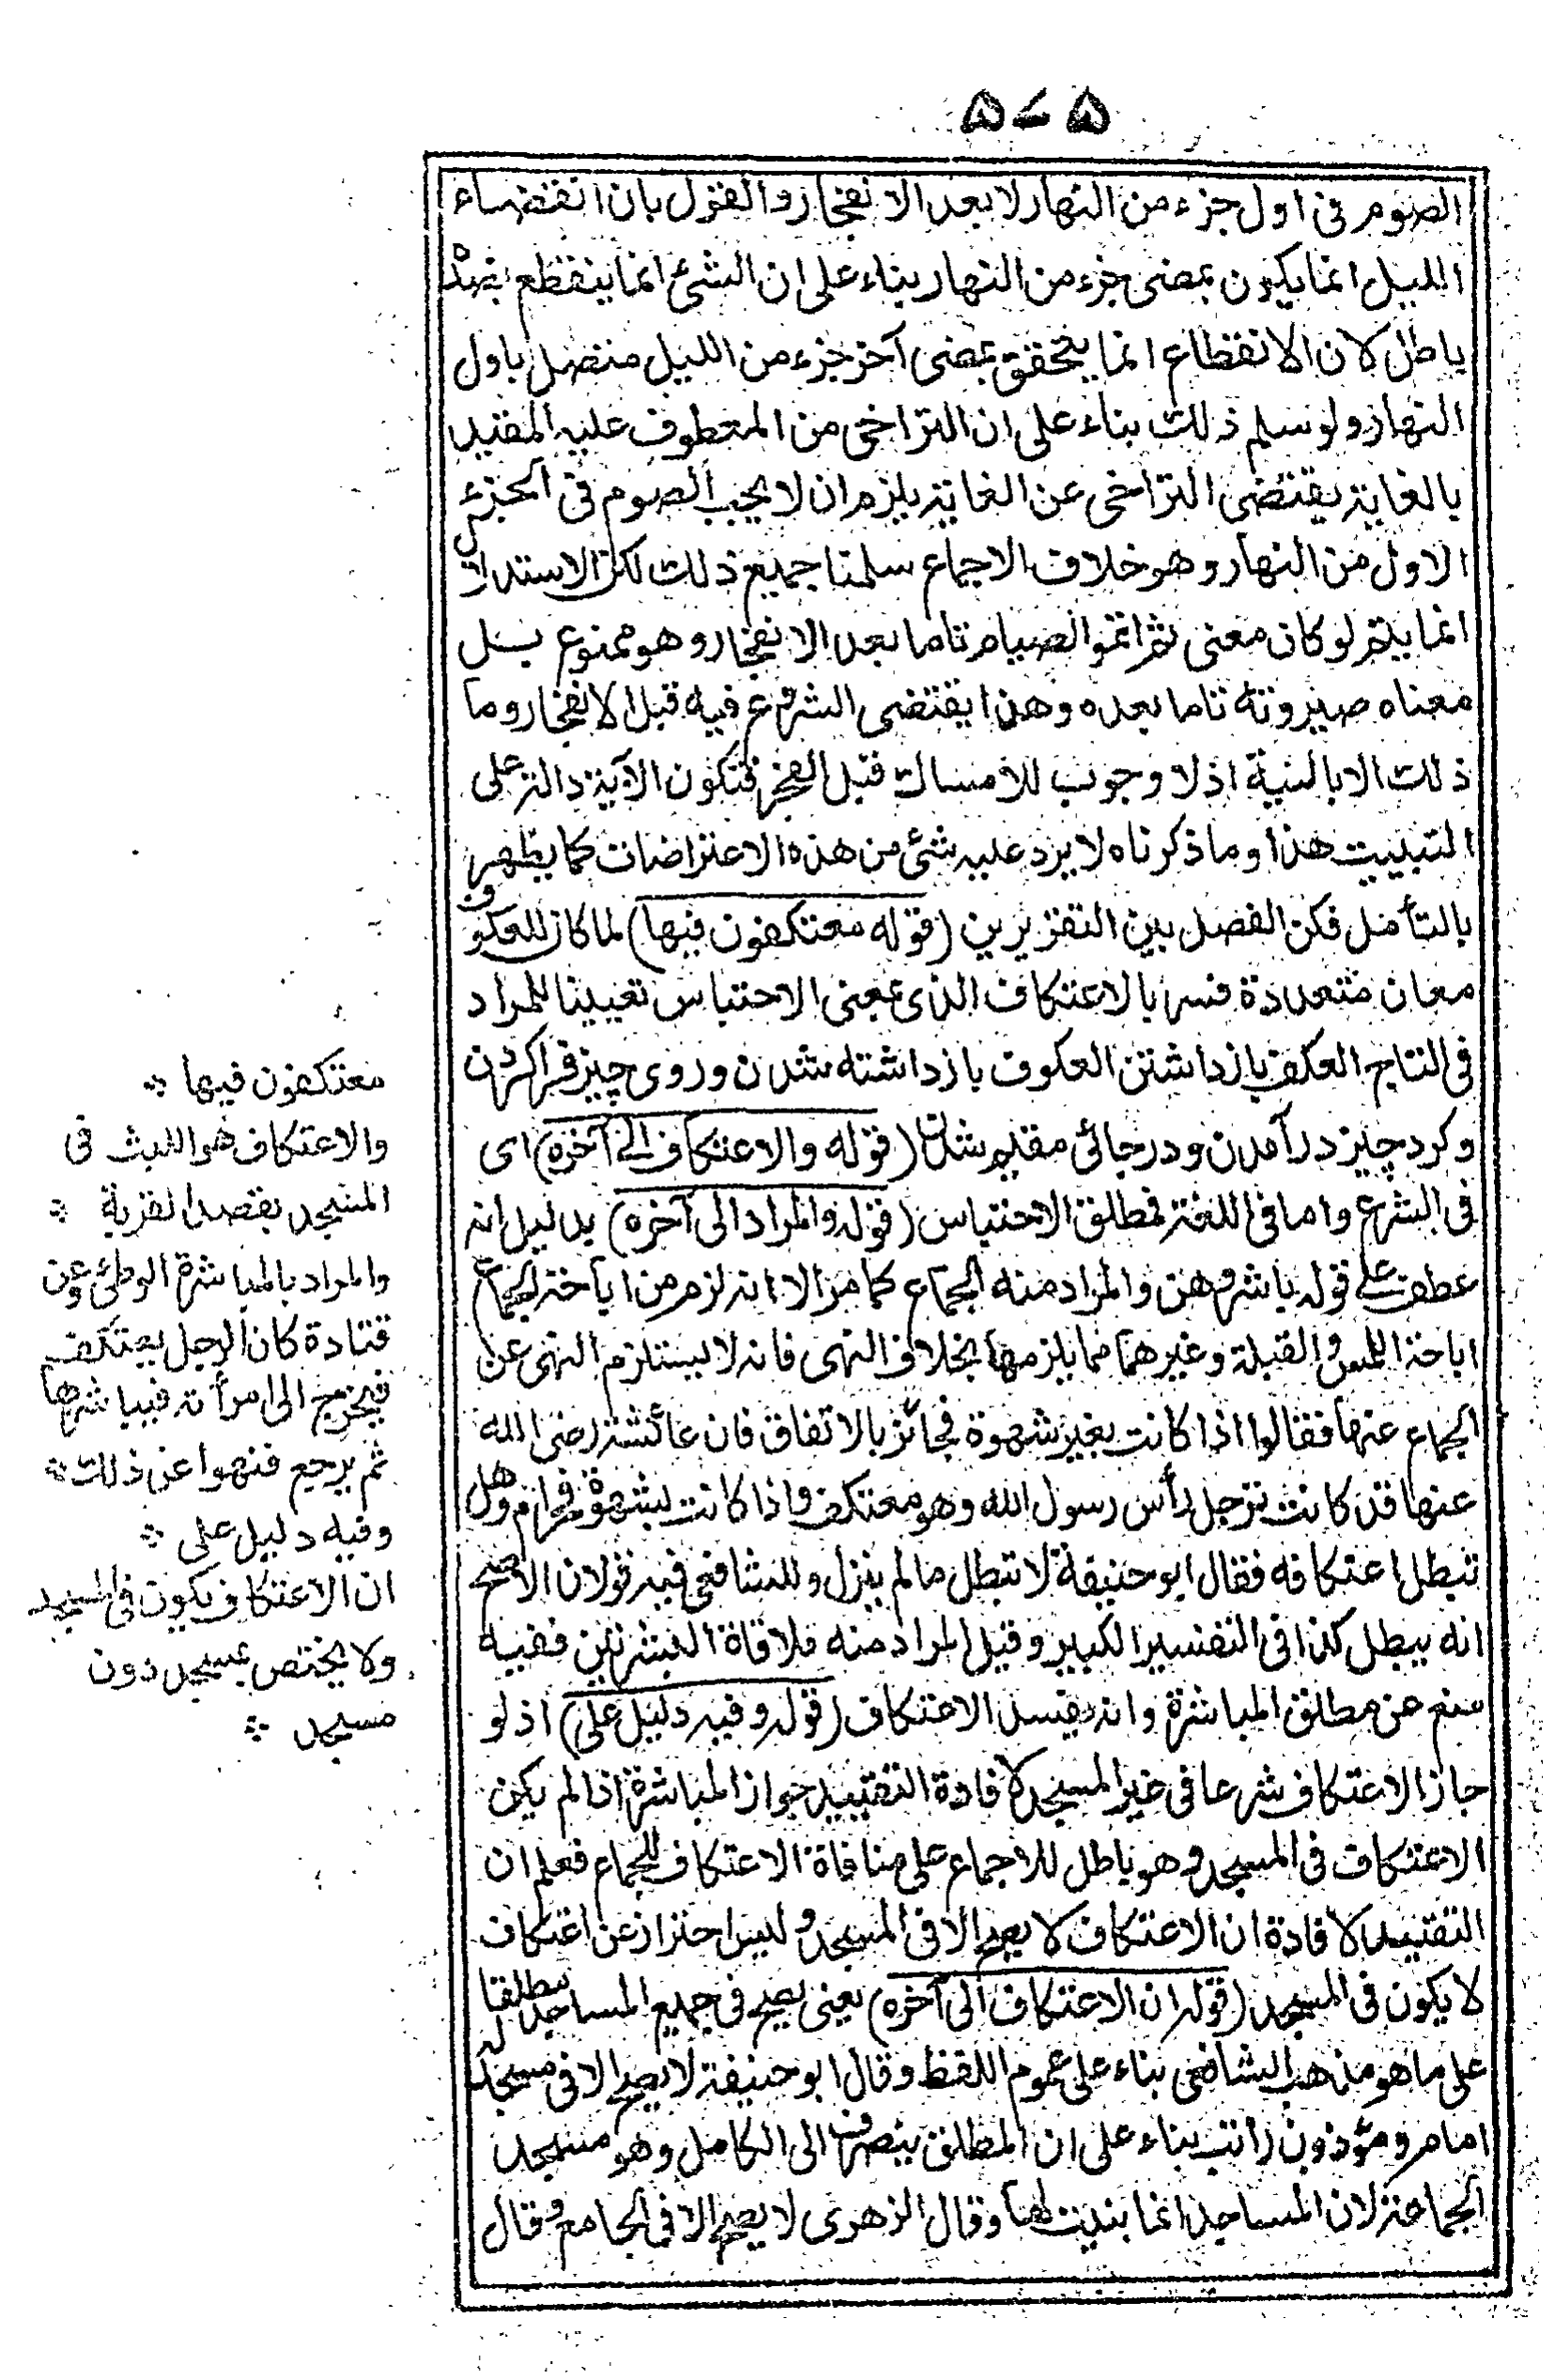 ۵۷۵
الصوم فى اول جزء من النهار لا بعد الانفجار والقول بان انقضاء
الليل انما يكون بمضى جزء من النهار بناء على ان الشئ انما ينقطع بضده
باطل لان الانقطاع انما يتحقق بمضى آخر جزء من الليل متصل باول
النهار ولو سلم ذلك بناء على ان التراخى من المعطوف عليه المقيد
بالغاية يقتضى التراخى عن الغاية يلزم ان لا يجب الصوم فى الجزء
الاول من النهار وهو خلاف الاجماع سلمنا جميع ذلك لكن الاستدلال
انما يتم لو كان معنى ثم اتموا الصيام تاما بعد الانفجار وهو ممنوع بل
معناه صيرورته تاما بعده وهذا يقتضى الشروع فيه قبل الانفجار وما
ذلك الا بالنية اذ لا وجوب للامساك قبل الفجر فتكون الآية دالة على
التبييت هذا وما ذكرناه لا يرد عليه شئ من هذه الاعتراضات كما يظهر
بالتأمل فكن الفصل بين التقريرين (قوله معتكفون فيها) لما كان للعكوف
معان متعددة فسر بالاعتكاف الذى بمعنى الاحتباس تعيينا للمراد
فى التاج العكف بازداشتن العكوف بازداشته شدن وروى چيز فرا كردن
وكرد چيز درآمدن ودرجائى مقيم شدن (قوله والاعتكاف الى آخره) اى
فى الشرع واما فى اللغة فمطلق الاحتباس (قوله والمراد الى آخره) بدليل انه
عطف على قوله باشروهن والمراد منه الجماع كما مر الا انه لزم من اباحة الجماع
اباحة اللمس والقبلة وغيرهما مما يلزمها بخلاف النهى فانه لا يستلزم النهى عن
الجماع عنها فقالوا اذا كانت بغير شهوة فجائز بالاتفاق فان عائشة رضى الله
عنها قد كانت ترجل رأس رسول الله وهو معتكف واذا كانت بشهوة فحرام وهل
تبطل اعتكافه فقال ابو حنيفة لا تبطل ما لم ينزل وللشافعى فيه قولان الاصح
انه يبطل كذا فى التفسير الكبير وقيل المراد منه ملاقاة البشرتين ففيه
منع عن مطلق المباشرة وانه يفسد الاعتكاف (قوله وفيه دليل على) اذ لو
جاز الاعتكاف شرعا فى غير المسجد لافادة التقييد جواز المباشرة اذا لم يكن
الاعتكاف فى المسجد وهو باطل للاجماع على منافاة الاعتكاف للجماع فعلم ان
التقييد لافادة ان الاعتكاف لا يصح الا فى المسجد وليس احتراز عن اعتكاف
لا يكون فى المسجد (قوله ان الاعتكاف الى آخره) يعنى يصح فى جميع المساجد مطلقا
على ما هو مذهب الشافعى بناء على عموم اللفظ وقال ابو حنيفة لا يصح الا فى مسجد له
امام ومؤذون راتب بناء على ان المطلق ينصرف الى الكامل وهو مسجد
الجماعة لان المساجد انما بنيت لها وقال الزهرى لا يصح الا فى الجامع وقال
معتكفون فيها ❊
والاعتكاف هو اللبث فى
المسجد بقصد القربة ❊
والمراد بالمباشرة الوطئ وعن
قتادة كان الرجل يعتكف
فيخرج الى امرأته فيباشرها
ثم يرجع فنهوا عن ذلك ❊
وفيه دليل على ❊
ان الاعتكاف يكون فى المسجد
ولا يختص بمسجد دون
مسجد ❊